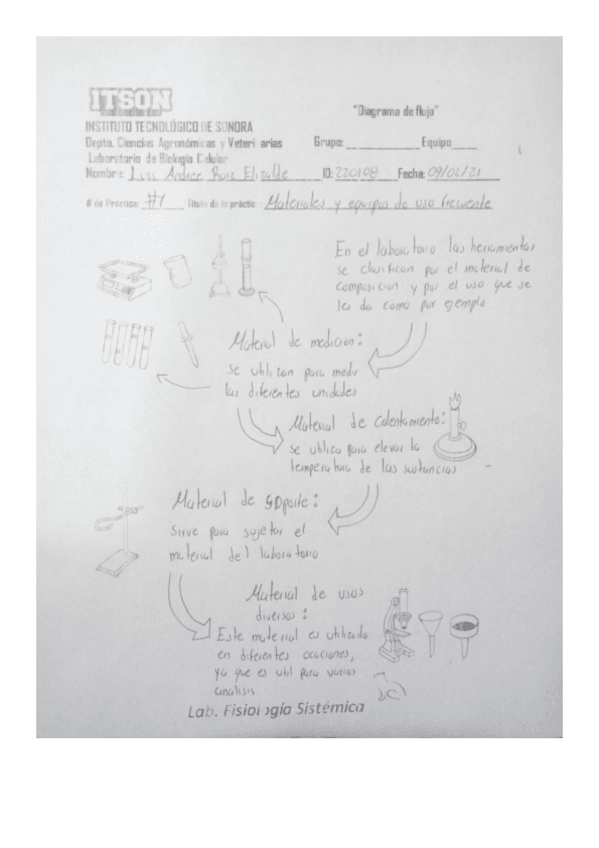 ITSON
"Diagrama de flujo"
INSTITUTO TECNOLÓGICO DE SONORA
Depto. Ciencias Agronómicas y Veteri arias Grupo: Equipo
Laboratorio de Biología Celular
Nombre: Luis Andree Ruiz Elizalde ID: 220108 Fecha: 09/02/21
# de Práctica: #1 Título de la práctic Materiales y equipos de uso frecuente
En el laboratorio las herramientas
se clasifican por el material de
composicion y por el uso que se
les da como por ejemplo
Material de medicion:
se utilizan para medir
las diferentes unidades
Material de calentamiento:
se utiliza para elevar la
temperatura de las sustancias
Material de soporte:
Sirve para sujetar el
material del laboratorio
Material de usos
diversos:
Este material es utilizado
en diferentes ocaciones,
ya que es util para varios
analisis
Lab. Fisiología Sistémica